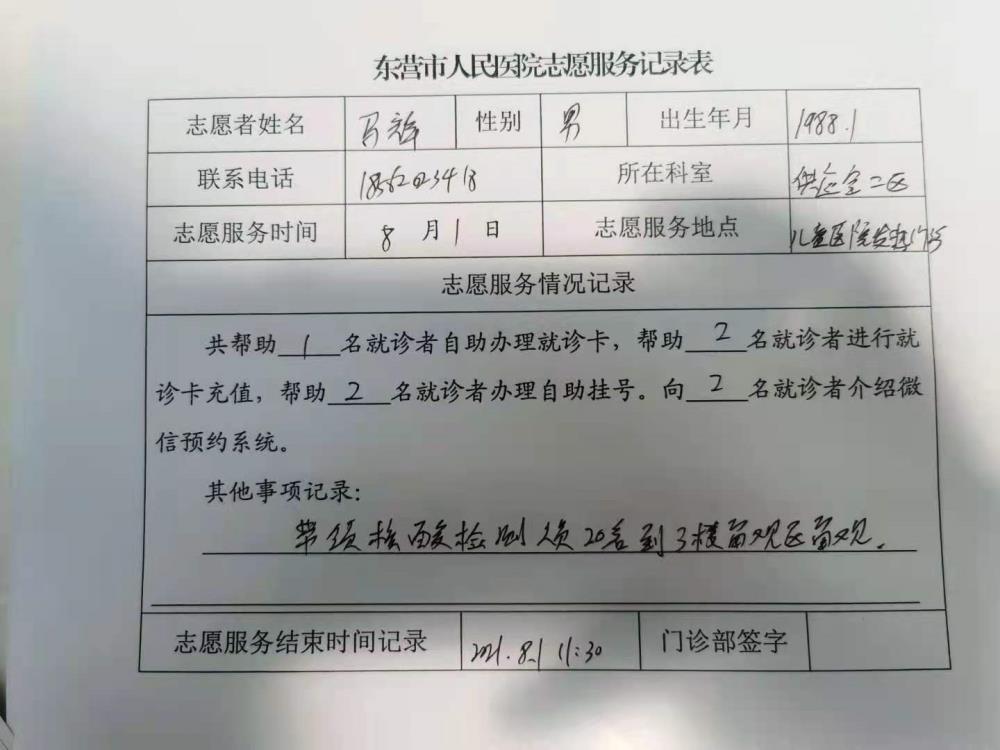 东营市人民医院志愿服务记录表
志愿者姓名 马 性别 男 出生年月 1988.1
联系电话 所在科室 供应室二区
志愿服务时间 8月1日 志愿服务地点 儿童医院发热门诊
志愿服务情况记录
共帮助1名就诊者自助办理就诊卡，帮助2名就诊者进行就
诊卡充值，帮助2名就诊者办理自助挂号。向2名就诊者介绍微
信预约系统。
其他事项记录：
带领核酸检测人员20名到3楼留观区留观.
志愿服务结束时间记录 2021.8.1 11:30 门诊部签字